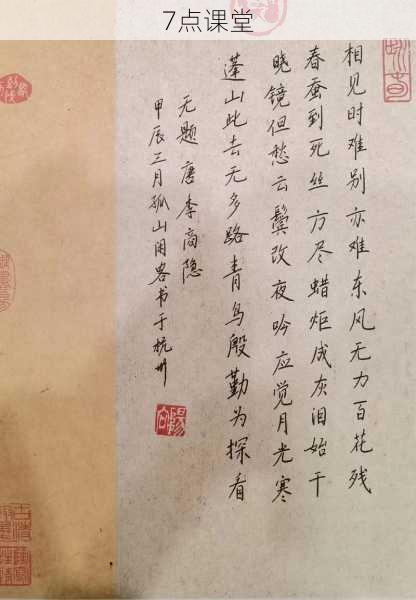 7点课堂
相见时难别亦难东风无力百花残
春蚕到死丝方尽蜡炬成灰泪始干
晓镜但愁云鬓改夜吟应觉月光寒
蓬山此去无多路青鸟殷勤为探看
无题 唐 李商隐
甲辰三月孤山闲客书于杭州